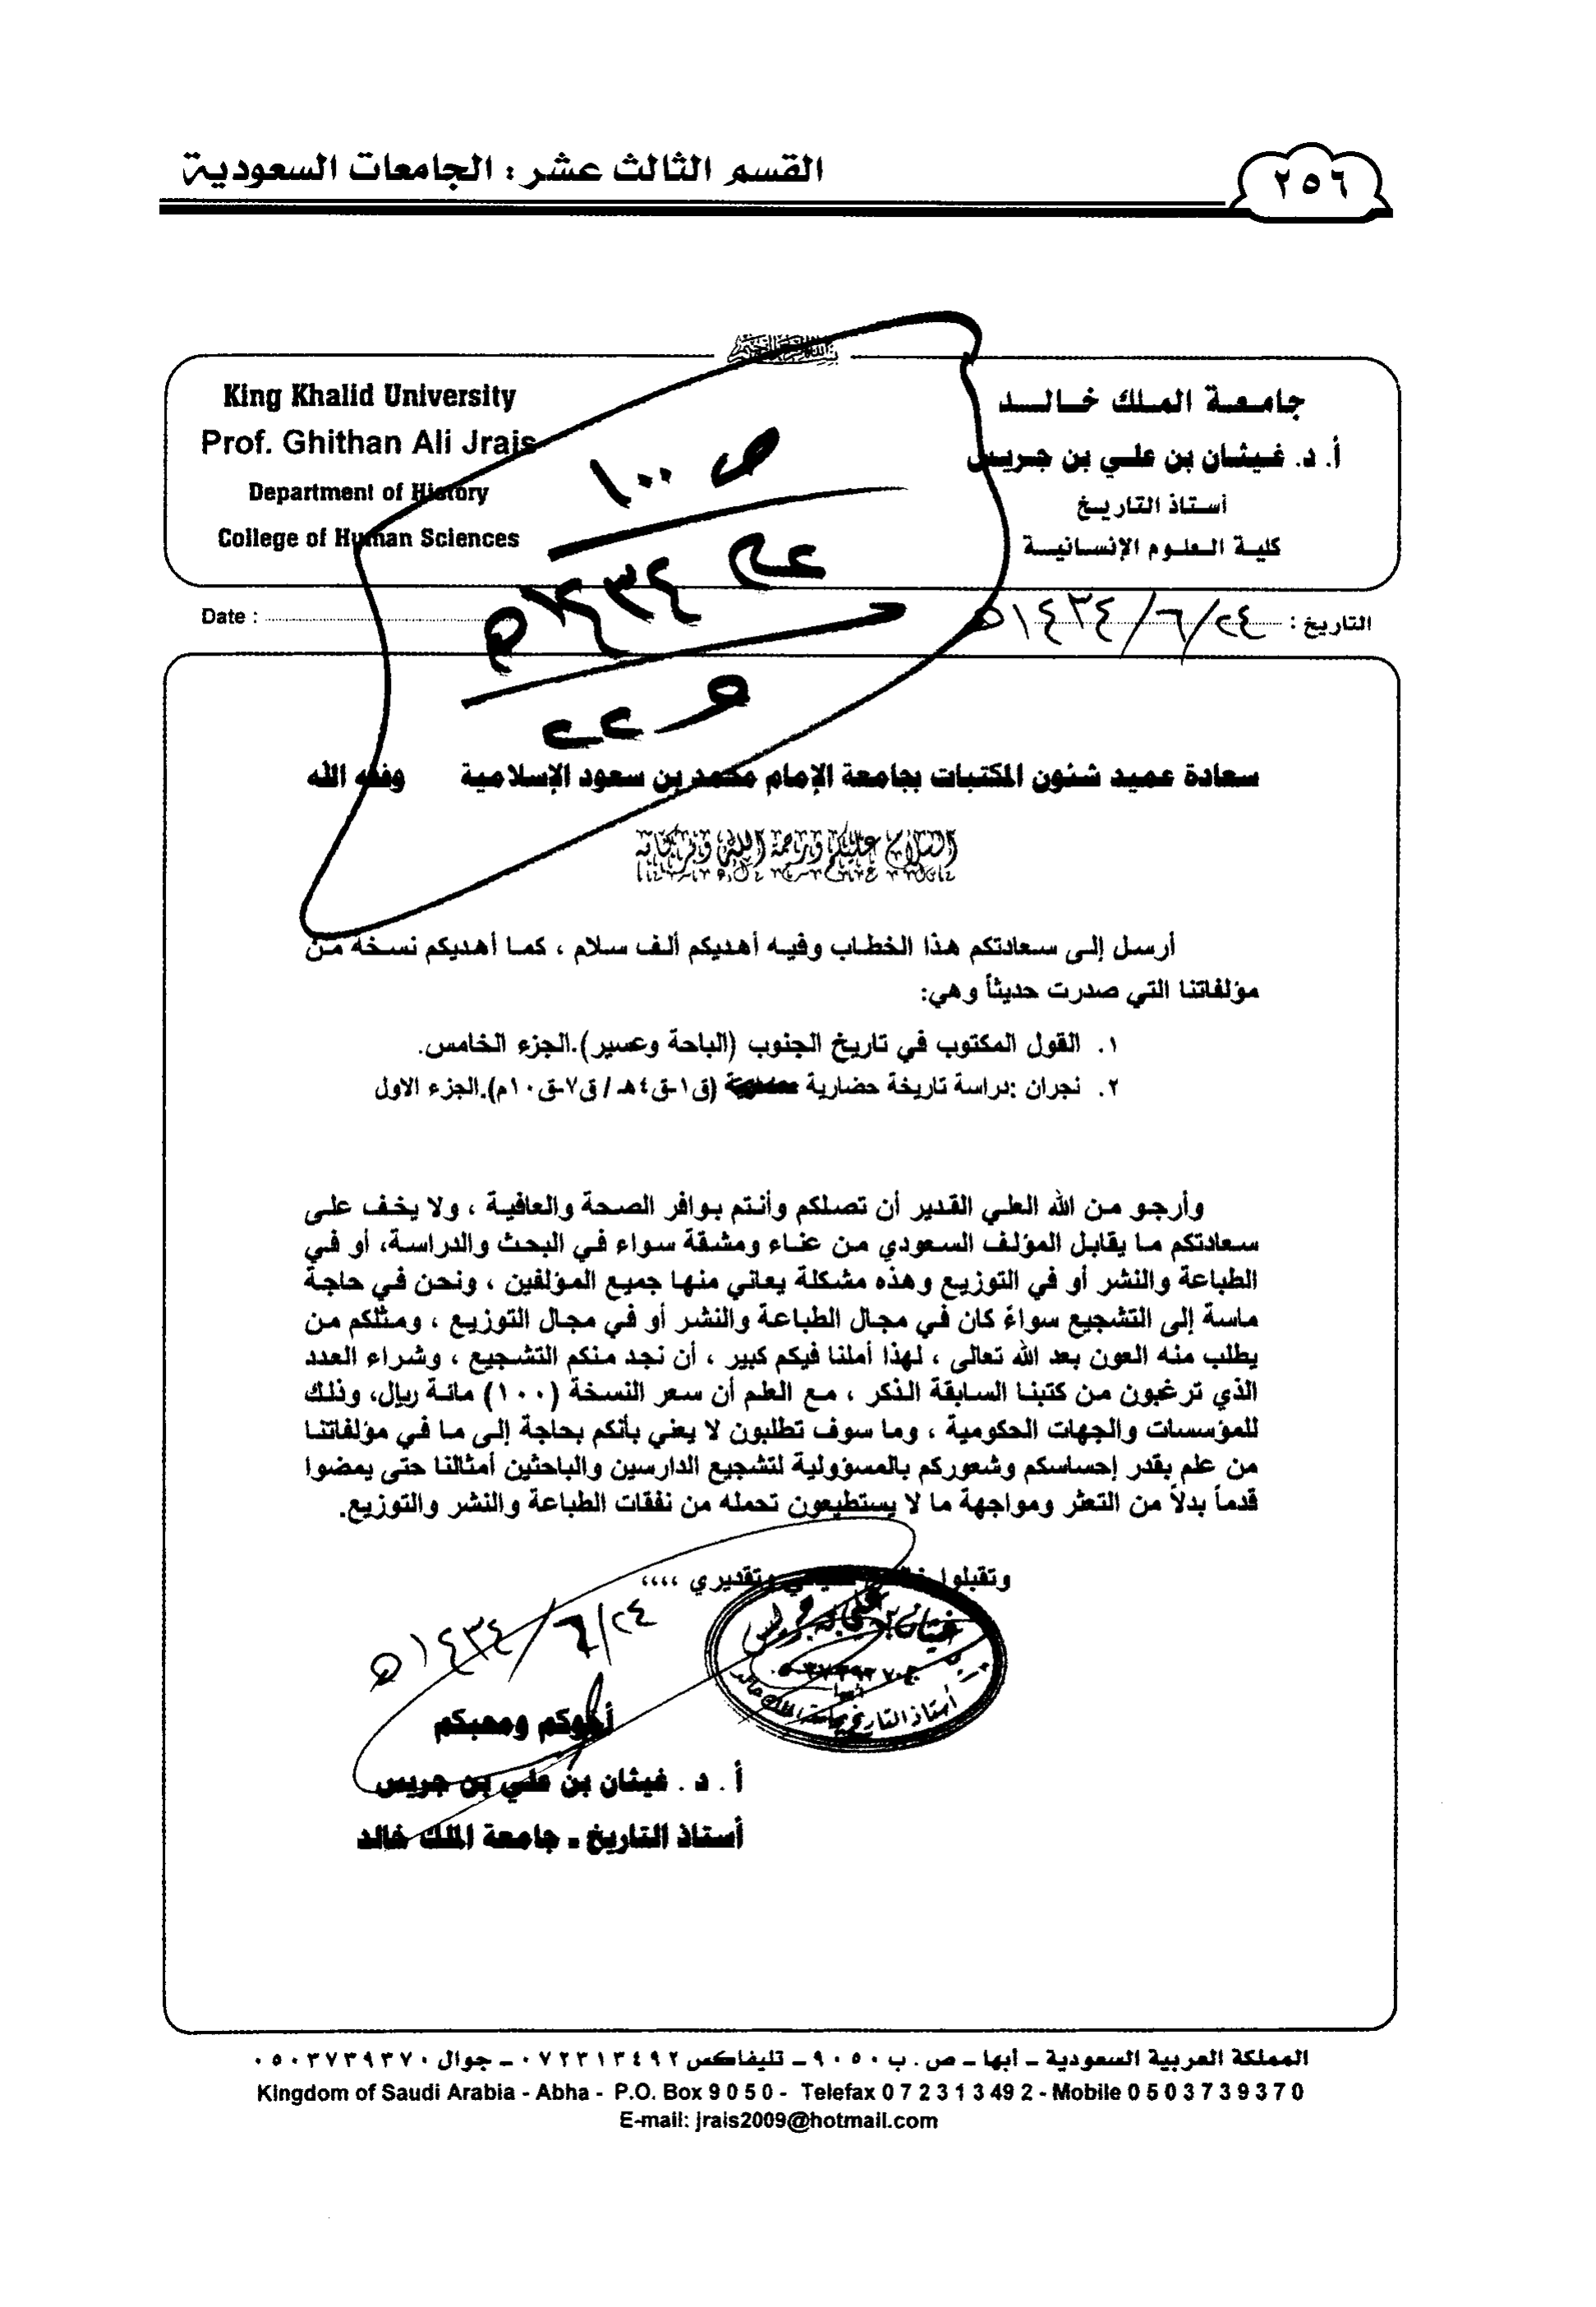 القسم الثالث عشر : الجامعات السعودية
٢٥٦
جامعة الملك خالد
أ. د. غيثان بن علي بن جريس
أستاذ التاريخ
كلية العلوم الإنسانية
King Khalid University
Prof. Ghithan Ali Jrais
Department of History
College of Human Sciences
ص ١٠٠
١٤٣٤هـ
التاريخ : ٢٤/٦/١٤٣٤هـ
Date :
سعادة عميد شئون المكتبات بجامعة الإمام محمد بن سعود الإسلامية وفقه الله
السلام عليكم ورحمة الله وبركاته
أرسل إلى سعادتكم هذا الخطاب وفيه أهديكم ألف سلام ، كما أهديكم نسخة من
مؤلفاتنا التي صدرت حديثاً وهي:
١. القول المكتوب في تاريخ الجنوب (الباحة وعسير).الجزء الخامس.
٢. نجران :دراسة تاريخة حضارية (ق١-ق٤هـ / ق٧-ق١٠م).الجزء الاول
وأرجو من الله العلي القدير أن تصلكم وأنتم بوافر الصحة والعافية ، ولا يخف على
سعادتكم ما يقابل المؤلف السعودي من عناء ومشقة سواء في البحث والدراسة، أو في
الطباعة والنشر أو في التوزيع وهذه مشكلة يعاني منها جميع المؤلفين ، ونحن في حاجة
ماسة إلى التشجيع سواءً كان في مجال الطباعة والنشر أو في مجال التوزيع ، ومثلكم من
يطلب منه العون بعد الله تعالى ، لهذا أملنا فيكم كبير ، أن نجد منكم التشجيع ، وشراء العدد
الذي ترغبون من كتبنا السابقة الذكر ، مع العلم أن سعر النسخة (١٠٠) مائة ريال، وذلك
للمؤسسات والجهات الحكومية ، وما سوف تطلبون لا يعني بأنكم بحاجة إلى ما في مؤلفاتنا
من علم بقدر إحساسكم وشعوركم بالمسؤولية لتشجيع الدارسين والباحثين أمثالنا حتى يمضوا
قدماً بدلاً من التعثر ومواجهة ما لا يستطيعون تحمله من نفقات الطباعة والنشر والتوزيع.
وتقبلوا وتقديري ،،،،
٢٤/٦/١٤٣٤هـ
أخوكم ومحبكم
أ . د . غيثان بن علي بن جريس
أستاذ التاريخ ـ جامعة الملك خالد
المملكة العربية السعودية – أبها – ص . ب ٩٠٥٠ – تليفاكس ٠٧٢٣١٣٤٩٢ – جوال ٠٥٠٣٧٣٩٣٧٠
Kingdom of Saudi Arabia - Abha - P.O. Box 9 0 5 0 - Telefax 0 7 2 3 1 3 49 2 - Mobile 0 5 0 3 7 3 9 3 7 0
E-mail: jrais2009@hotmail.com